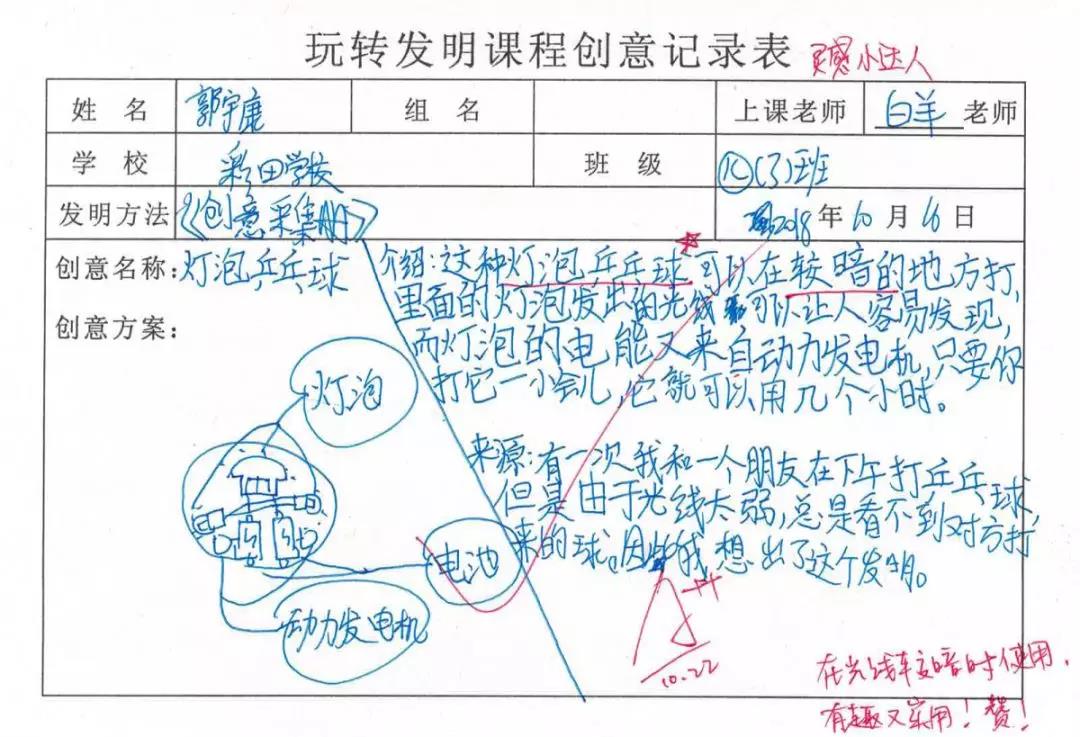 玩转发明课程创意记录表 灵感小达人
姓名 郭宇康 组名 上课老师 白羊 老师
学校 彩田学校 班级 六(3)班
发明方法 《创意采集册》 2018年10月16日
创意名称:灯泡乒乓球
创意方案:
灯泡
电池
动力发电机
介绍:这种灯泡乒乓球可以在较暗的地方打,
里面的灯泡发出的光线可以让人容易发现,
而灯泡的电能又来自动力发电机,只要你
打它一小会儿,它就可以用几个小时。
来源:有一次我和一个朋友在下午打乒乓球,
但是由于光线太弱,总是看不到对方打
来的球。因此我想出了这个发明。
A++
10.22
在光线较暗时使用,
有趣又实用!赞!